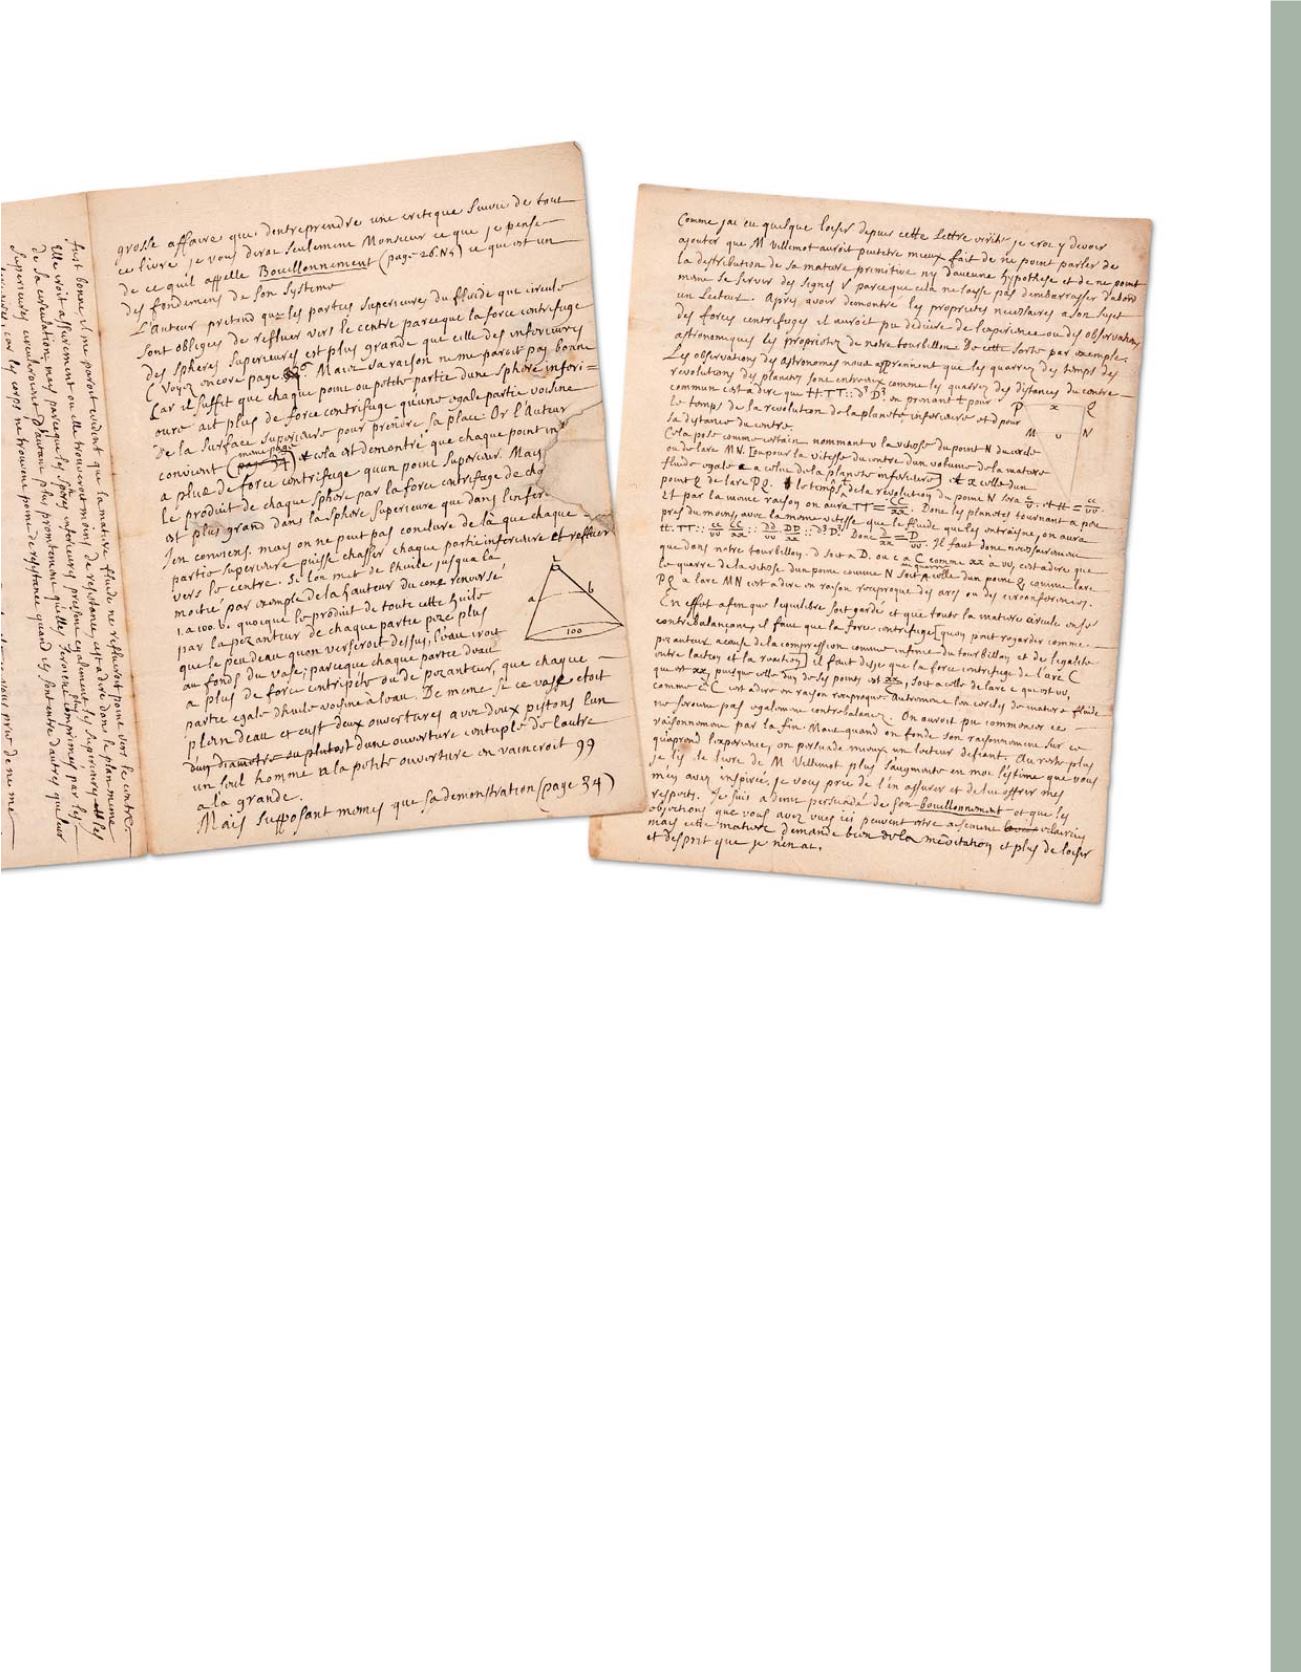 grosse affaire que d'entreprendre une critique suivie de tout
ce livre je vous dirai seulement Monsieur ce que je pense
de ce quil appelle Bouillonnement (page 26. N5) ce qui est un
des fondemens de son systeme
L'auteur pretend que les parties superieures du fluide que circule
sont obligees de refluer vers le centre parceque la force centrifuge
des spheres superieures est plus grande que celle des inferieures
(Voyez encore page Mais sa raison ne me paroit pas bonne
Car il suffit que chaque point ou petite partie dune sphere inferi=
eure ait plus de force centrifuge qu'une egale partie voisine
de la surface superieure pour prendre sa place. Or l'Auteur
convient (page 34) cela est demontré que chaque point in
a plus de force centrifuge qu'un point superieur. Mais
le produit de chaque sphere par la force centrifuge de cha
est plus grand dans la sphere superieure que dans l'infer
Jen conviens. mais on ne peut pas conclure de là que chaque
partie superieure puisse chasser chaque partie inferieure et refluer
vers le centre. Si lon met de lhuile jusqua la
moitié par exemple de la hauteur du cone renversé
1. a 100. b. quoique le produit de toute cette huile
par la pezanteur de chaque partie peze plus
que le peu deau quon verseroit dessus, l'eau iroit
au fonds du vase; parceque chaque partie deau
a plus de force centripete ou de pezanteur, que chaque
partie egale dhuile voisine à leau. De meme si ce vase etoit
plein deau et eust deux ouvertures avec deux pistons lun
dun diametre ou plutost dune ouverture centuple de lautre
un seul homme a la petite ouverture en vaincroit 99
a la grande.
Mais supposant memes que sa demonstration (page 34)
1
a
b
100
fust bonne il me paroit evident que la matiere fluide ne reflueroit point vers le centre.
Elle iroit assurement ou elle trouveroit moins de resistance, cest a dire dans le plan meme
de sa circulation, mais parceque les spheres inferieures pressent egalement les superieures
superieures circuleroient dautant plus promtement quelles seroient plus comprimees par les
car les corps ne trouvent point de resistance quand ils sont entre dautres que leur
Comme jai eu quelque loisir depuis cette lettre ecrite je croi y devoir
ajouter que M Villemot auroit peutetre mieux fait de ne point parler de
la distribution de sa matiere primitive ny d'aucune hypothese et de ne point
meme se servir des signes V parceque cela ne laisse pas dembarrasser d'abord
un Lecteur. Apres avoir demontré les proprietez necessaires a son sujet
des forces centrifuges il auroit pu deduire de l'experience ou des observations
astronomiques les proprietez de notre tourbillon. De cette sorte par exemple.
Les observations des Astronomes nous apprennent que les quarrez des temps des
revolutions des planetes sont entreeux comme les quarrez des distances du centre
commun cest a dire que tt. TT :: d³. D³ en prenant t pour
le temps de la revolution de la planete inferieure et d pour
sa distance du centre.
P x Q
M v N
Cela posé comme certain nommant v la vitesse du point N du cercle
ou de larc MN. [ou pour la vitesse du centre dun volume de la matiere
fluide egale a celui de la planete inferieure] et x celle dun
point Q de larc PQ. le temps de la revolution du point N sera c/v. et tt = cc/vv.
Et par la meme raison on aura TT = CC/xx. Donc les planetes tournant a peu
pres du moins, avec la meme vitesse que le fluide qui les entraisne, on aura
tt. TT :: cc/vv. CC/xx :: dd/vv. DD/xx :: d³. D³. Donc d/xx = D/vv. Il faut donc necessairement
que dans notre tourbillon. d soit a D. ou c a C comme xx à vv, cest a dire que
le quarre de la vitesse dun point comme N soit au quarre a celle dun point Q, comme larc
PQ a larc MN cest a dire en raison reciproque des arcs ou des circonferences.
En effet afin que lequilibre soit gardé et que toute la matiere circule en se
contrebalançant, il faut que la force centrifuge [quon peut regarder comme
pezanteur a cause de la compression comme infinie du tourbillon et de legalité
entre laction et la reaction] il faut disje que la force centrifuge de l'arc C
que est xx, puisque celle dun de ses points est xx/C, soit a celle de larc c que est vv,
comme c à C cest a dire en raison reciproque. Autrement les cercles de matiere fluide
ne seroient pas egalement contrebalancez. On auroit pu commencer ce
raisonnement par la fin. Mais quand on fonde son raisonnement sur ce
quaprend lexperience, on persuade mieux un lecteur defiant. Au reste plus
je lis le livre de M Villemot plus saugmente en moi lestime que vous
m'en avez inspirée. je vous prie de l'en assurer et de lui offrir mes
respects. Je suis a demi persuadé de son bouillonnement et que les
objections que vous avez vues ici peuvent etre aisement eclaircies
mais cette matiere demande bien de la meditation et plus de loisir
et desprit que je n'en ai.